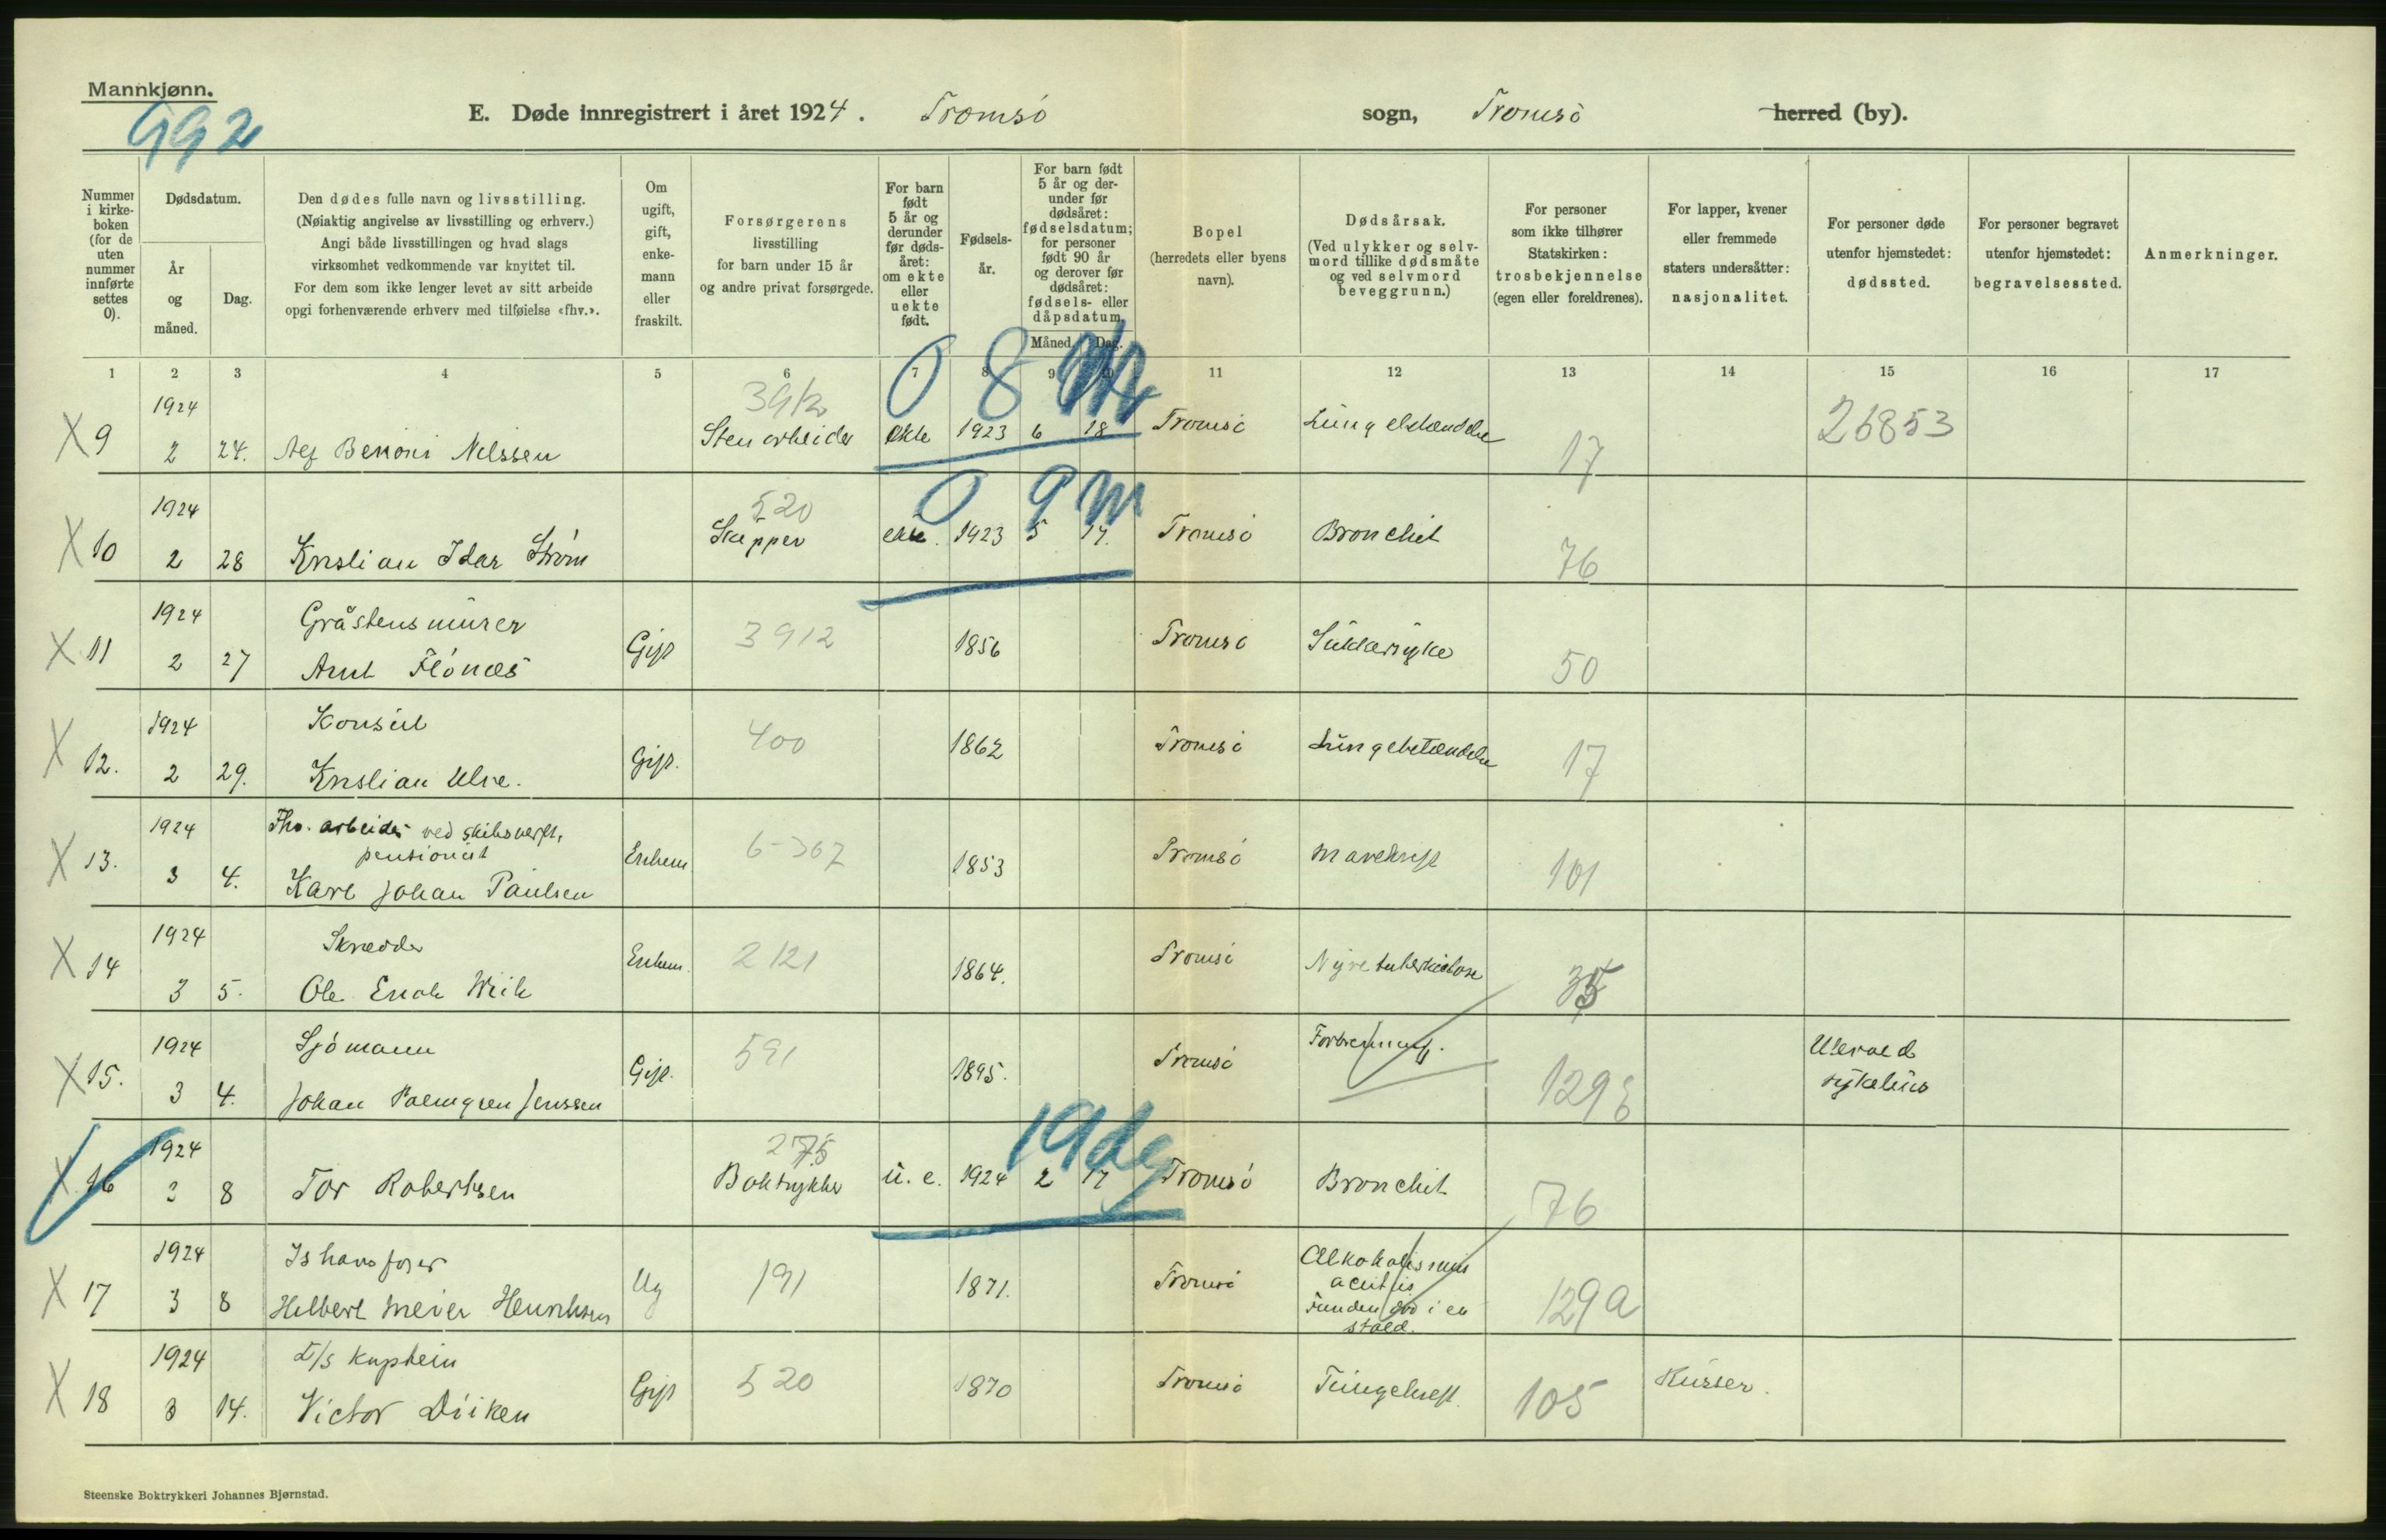 Mannkjønn.
992
E. Døde innregistrert i året 1924. Tromsö sogn, Tromsö herred (by).
Nummer i kirke-boken (for de uten nummer innførte settes 0).
Dødsdatum.
År og måned.
Dag.
Den dødes fulle navn og livsstilling.
(Nøiaktig angivelse av livsstilling og erhverv.)
Angi både livsstillingen og hvad slags
virksomhet vedkommende var knyttet til.
For dem som ikke lenger levet av sitt arbeide
opgi forhenværende erhverv med tilføielse «fhv.».
Om ugift, gift, enke-mann eller fraskilt.
Forsørgerens
livsstilling
for barn under 15 år
og andre privat forsørgede.
For barn født 5 år og derunder før døds-året: om ekte eller uekte født.
Fødsels-år.
For barn født 5 år og der-under før dødsåret: fødselsdatum; for personer født 90 år og derover før dødsåret: fødsels- eller dåpsdatum.
Måned. Dag.
Bopel
(herredets eller byens
navn).
Dødsårsak.
(Ved ulykker og selv-
mord tillike dødsmåte
og ved selvmord
beveggrunn.)
For personer
som ikke tilhører
Statskirken:
trosbekjennelse
(egen eller foreldrenes).
For lapper, kvener
eller fremmede
staters undersåtter:
nasjonalitet.
For personer døde
utenfor hjemstedet:
dødssted.
For personer begravet
utenfor hjemstedet:
begravelsessted.
Anmerkninger.
1 2 3 4 5 6 7 8 9 10 11 12 13 14 15 16 17
0 8
1924 3912
X 9 2 24. Benoni Nilssen Stenarbeider Ekte 1923 6 18 Tromsö 17 26853
0 9 m
1924 520
X 10 2 28 Kristian Idar Ström Skipper ekte. 1923 5 17. Tromsö Bronchit 76
1924 Gråstensmurer
X 11 2 27 Arnt Flönæs Gift 3912 1856 Tromsö Sukkersyke 50
1924 Konsul
X 12. 2 29. Kristian Gift. 400 1862 Tromsö Lungebetændelse 17
1924 Fhv. arbeider ved skibsverft,
pensionist
X 13. 3 4. Karl Johan Paulsen Enkem. 6-367 1853 Tromsö Mavekreft 101
1924 Skredder
X 14 3 5. Ole Enok Wiik Enkem. 2121 1864. Tromsö Nyretuberkulose 35
1924 Sjömann
X 15. 3 4. Johan Palmgren Jenssen Gift. 591 1895. Tromsö Forbrenning. 129b Ullevaal
sykehus
19 dg
1924 275
X 16 3 8 Tor Robertsen Boktrykker u. e. 1924 2 17 Tromsö Bronchit 76
1924 Ishavsfarer
X 17 3 8 Hilbert Meier Henriksen Ug 191 1871. Tromsö Alkoholismus
acutus
Funden död i en
stald. 129a
1924 D/s kaptein
X 18 3 14. Victor Gift 520 1870 Tromsö Tungekreft. 105 Russer.
Steenske Boktrykkeri Johannes Bjørnstad.